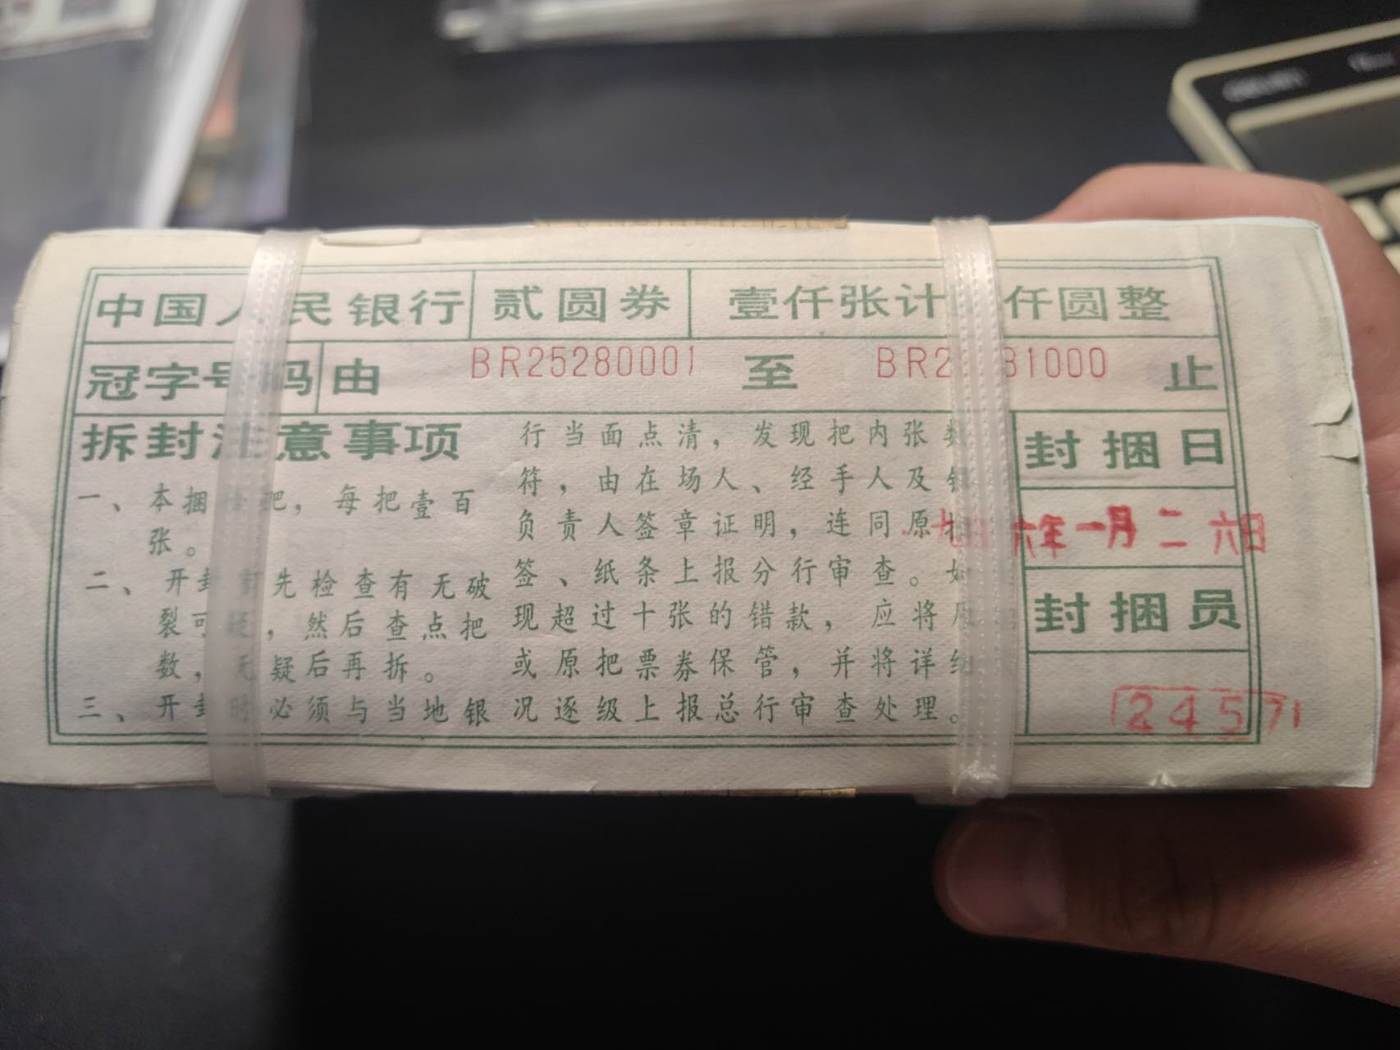 中国人民银行 贰圆券 壹仟张计 仟圆整
冠字号码 由 BR25280001 至 BR2 81000 止
拆封注意事项
一、本捆 把，每把壹百
张。
二、开封前先检查有无破
裂可疑，然后查点把
数，无疑后再拆。
三、开封时必须与当地银
行当面点清，发现把内张数
符，由在场人、经手人及银
负责人签章证明，连同原
签、纸条上报分行审查。如
现超过十张的错款，应将原
或原把票券保管，并将详细
况逐级上报总行审查处理。
封捆日
六年一月二六日
封捆员
24571